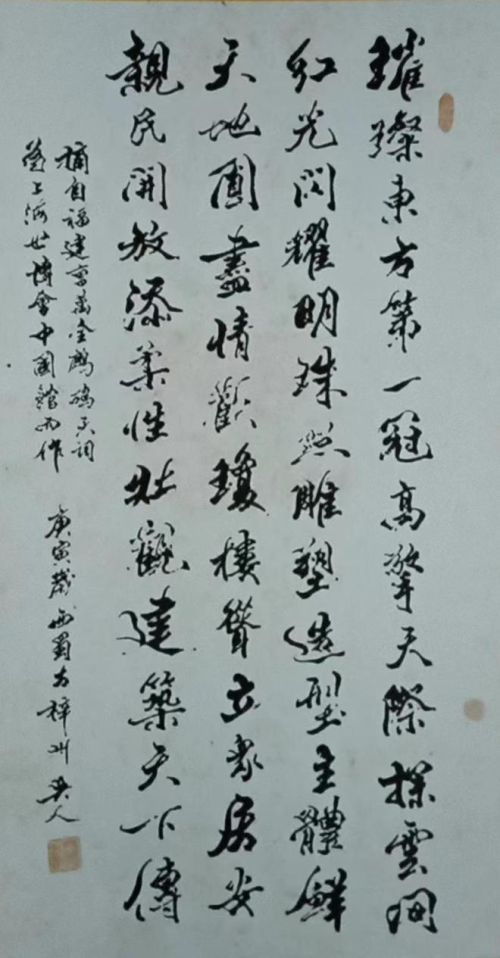 璀璨東方第一冠高擎天際探雲
紅光閃耀明珠照雕塑造型主體鮮
天地圓盡情歡瓊樓聳立家居安
親民開放添柔性壯觀建築天下傳
摘自福建萬金鷓鴣天詞
爲上海世博會中國館而作
庚寅歲西蜀古梓州人